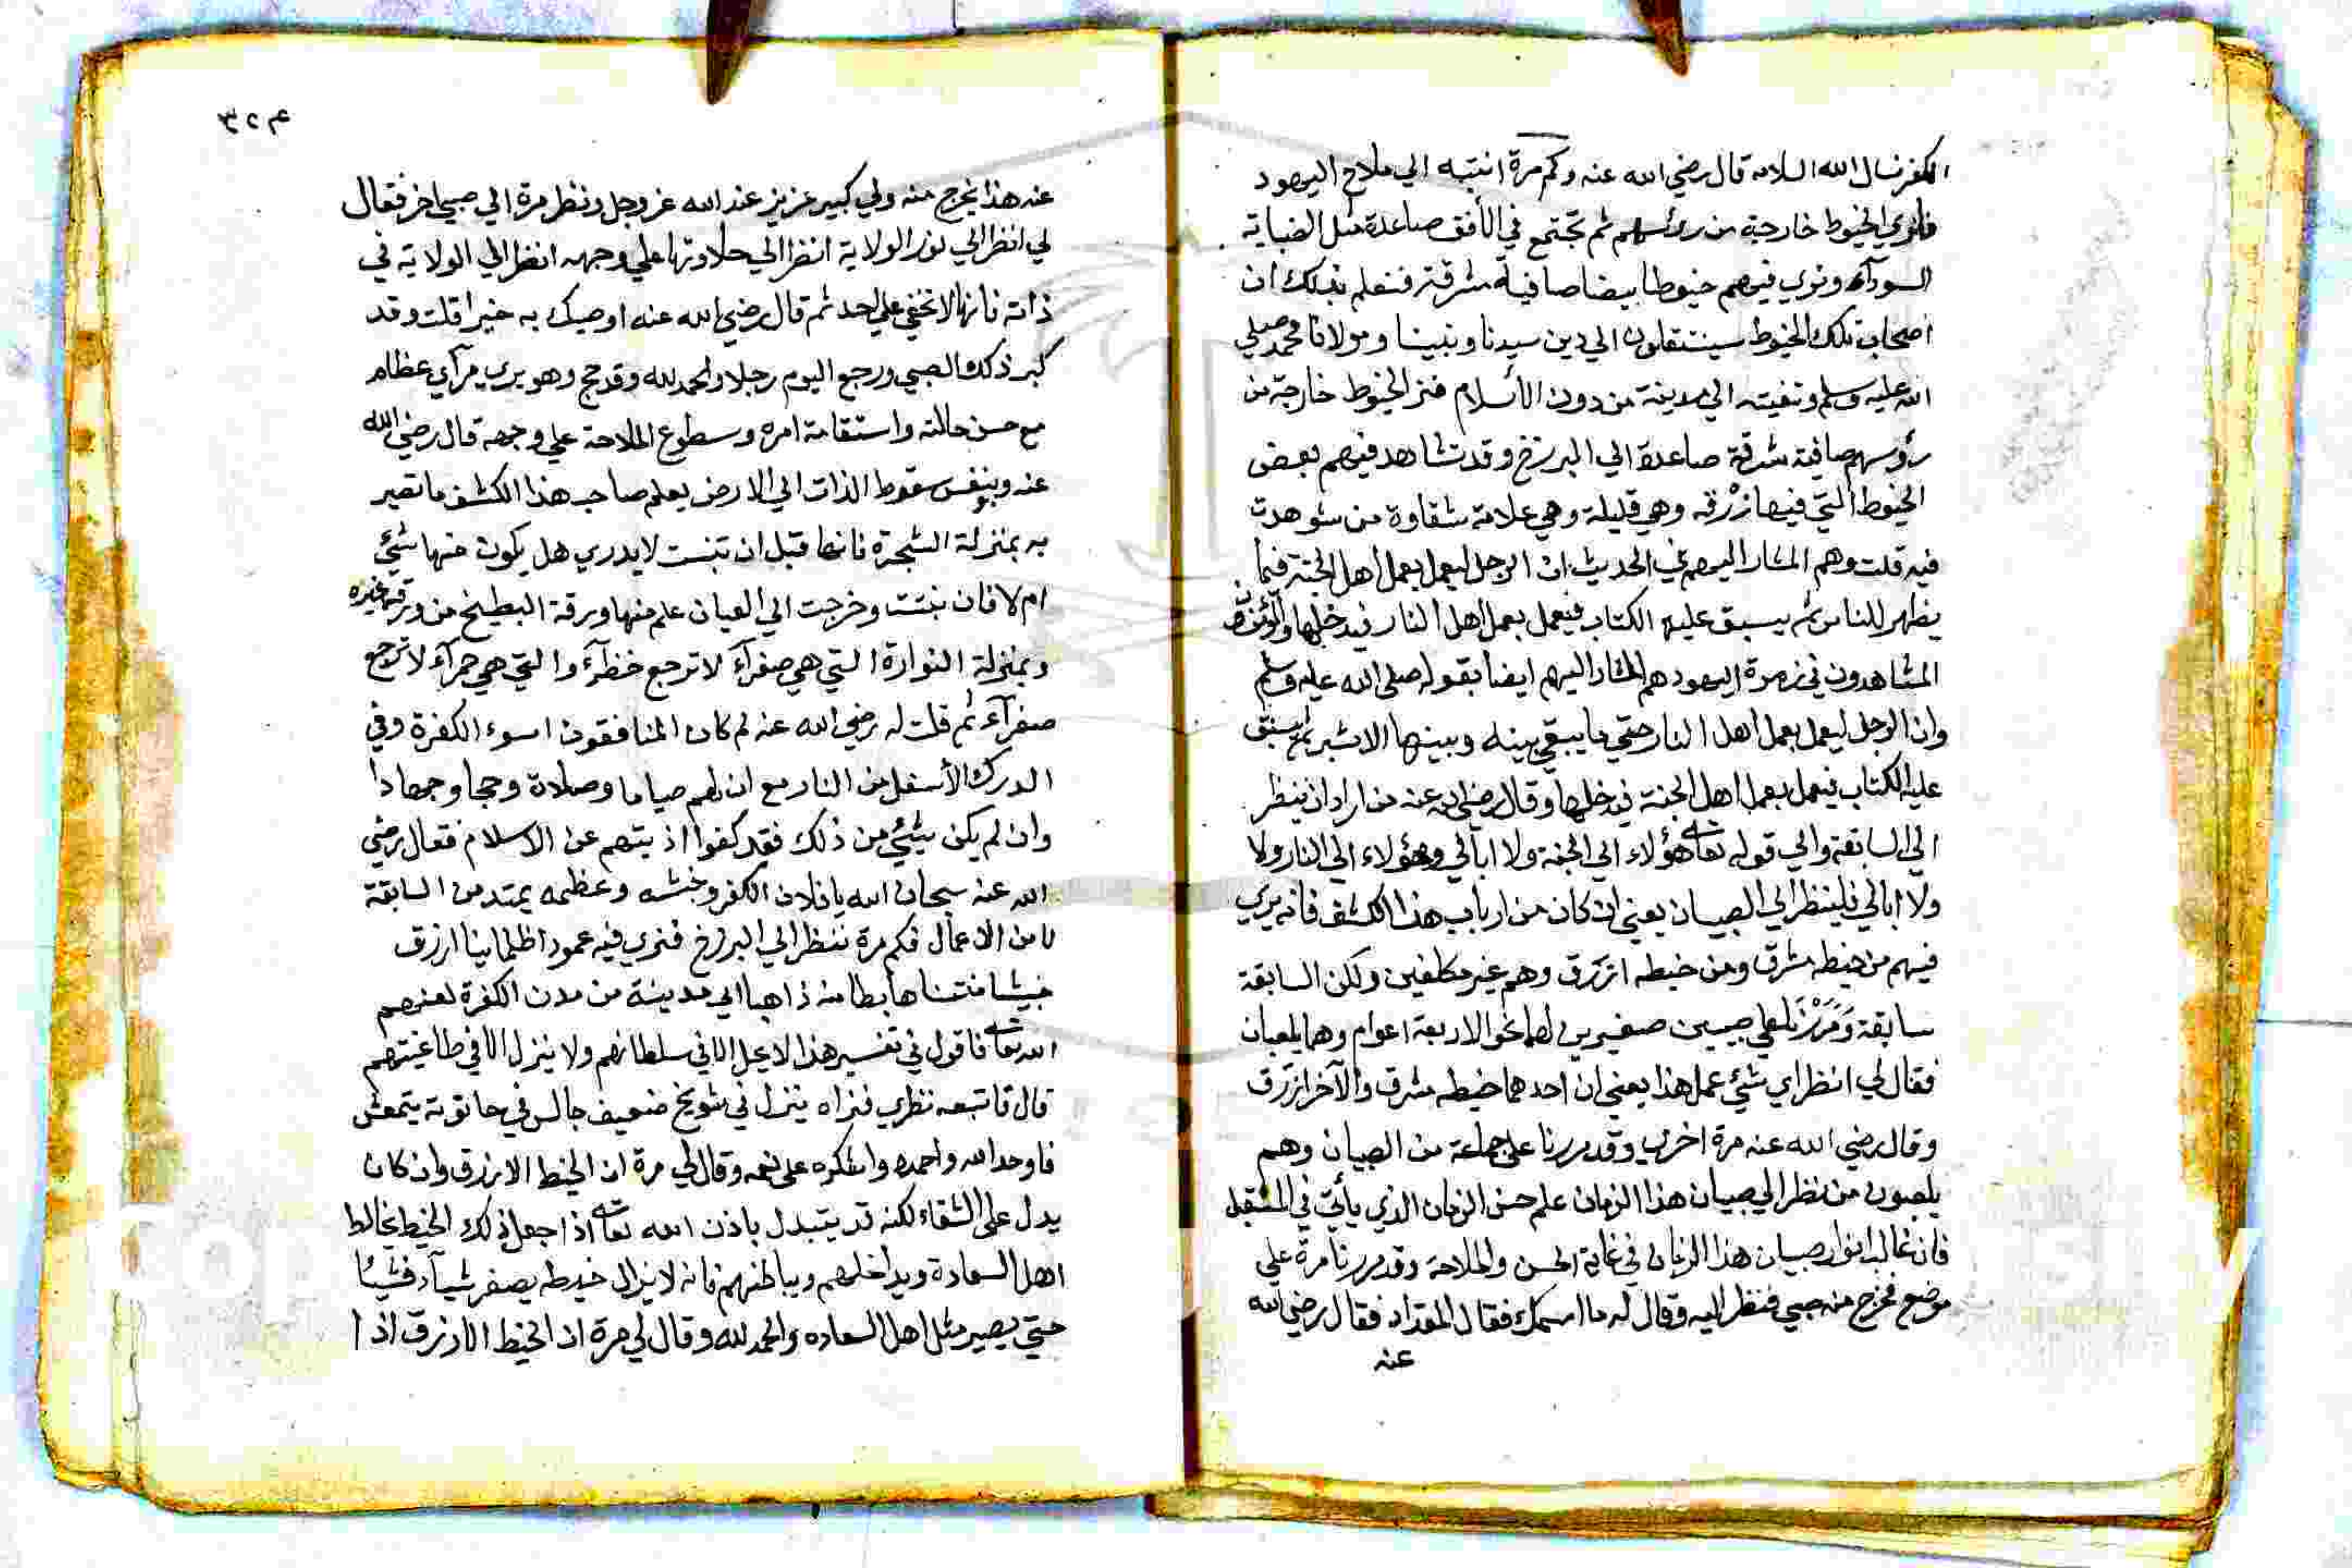 الكفر نسأل الله السلامة قال رضي الله عنه وكم مرة انتبه الي ملاح اليهود
فأري الخيوط خارجة من رؤسهم ثم تجتمع في الأفق صاعدة مثل الضبابة
السودآء ونري فيهم خيوطا بيضا صافية مشرقة فنعلم بذلك ان
اصحاب تلك الخيوط سينتقلون الي دين سيدنا ونبينا ومولانا محمد صلي
الله عليه وسلم ونغيته الي مدينة من دون الأسلام فنر الخيوط خارجة من
رؤسهم صافية مشرقة صاعدة الي البرزخ وقد تشاهد فيهم بعض
الخيوط التي فيها زرقة وهي قليلة وهي علامة شقاوة من شوهدت
فيه قلت وهم المشار اليهم في الحديث ان الرجل ليعمل بعمل اهل الجنة فيما
يظهر للناس ثم يسبق عليه الكتاب فيعمل بعمل اهل النار فيدخلها
المشاهدون في زمرة اليهود هم المشار اليهم ايضا بقوله صلي الله عليه وسلم
وان الرجل ليعمل بعمل اهل النار حتي ما يبقي بينه وبينها الا شبر ثم يسبق
عليه الكتاب فيعمل بعمل اهل الجنة فيدخلها وقال رضي الله عنه من اراد ان ينظر
الي السابقة والي قوله تعا هؤلاء الي الجنة ولا ابالي وهؤلاء الي النار ولا
ولا ابالي فلينظر الي الصبيان يعني ان كان من ارباب هذا الكشف فانه يري
فيهم من خيطه مشرق ومن خيطه ازرق وهم غير مكلفين ولكن السابقة
سابقة ومررنا علي صبيين صغيرين لهما نحو الاربعة اعوام وهما يلعبان
فقال لي انظر اي شئ عمل هذا يعني ان احدهما خيطه مشرق والآخر ازرق
وقال رضي الله عنه مرة اخري وقد مررنا علي جماعة من الصبيان وهم
يلعبون من نظر الي صبيان هذا الزمان علم حسن الزمان الذي يأتي في المستقبل
فان غالب انوار صبيان هذا الزمان في غاية الحسن والملاحة وقد مررنا مرة علي
موضع فخرج منه صبي فنظر اليه وقال له ما اسمك فقال المقداد فقال رضي الله
عنه
٣٢٩
عنه هذا يخرج منه ولي كبير عزيز عند الله عز وجل ونظر مرة الي صبي اخر فقال
لي انظر الي نور الولاية انظر الي حلاوتها علي وجهه انظر الي الولاية في
ذاته فانها لا تخفي علي احد ثم قال رضي الله عنه اوصيك به خيرا قلت وقد
كبر ذلك الصبي ورجع اليوم رجلا والحمد لله وقد حج وهو يري مرآي عظام
مع حسن حالته واستقامة امره وسطوع الملاحة علي وجهه قال رضي الله
عنه وبنفس سقوط الذات الي الارض يعلم صاحب هذا الكشف ما تصير
به بمنزلة الشجرة فانها قبل ان تنبت لا يدري هل يكون منها شئ
ام لا فان نبتت وخرجت الي العيان علم منها ورقة البطيخ من ورقة غيره
وبمنزلة النوارة التي هي صفرآء لا ترجع خضرآء والتي هي حمرآء لا ترجع
صفرآء ثم قلت له رضي الله عنه لم كان المنافقون اسوء الكفرة وفي
الدرك الأسفل من النار مع ان لهم صياما وصلاة وحجا وجهادا
وان لم يكن شئ من ذلك فقد كفوا اذيتهم عن الاسلام فقال رضي
الله عنه سبحان الله يا فلان الكفر وخبثه وعظمه يمتد من السابقة
لا من الاعمال فكم مرة ننظر الي البرزخ فنري فيه عمودا ظلمانيا ازرق
خبيثا منتنا هابطا منه ذاهبا الي مدينة من مدن الكفرة لعنهم
الله تعا فاقول في تفسير هذا لا يحل الا في سلطانهم ولا ينزل الا في طاغيتهم
قال فاتبعه نظري فنراه ينزل في شويخ ضعيف جالس في حانوته يتمعش
فاوحد الله واحمده واشكره علي نعمه وقال لي مرة ان الخيط الازرق وان كان
يدل علي الشقاء لكنه قد يتبدل باذن الله تعا اذا جعل ذلك الخيط يخالط
اهل السعادة ويداخلهم ويباطنهم فانه لا يزال خيطه يصفر شيآء فشيئا
حتي يصير مثل اهل السعاده والحمد لله وقال لي مرة ان الخيط الازرق اذا